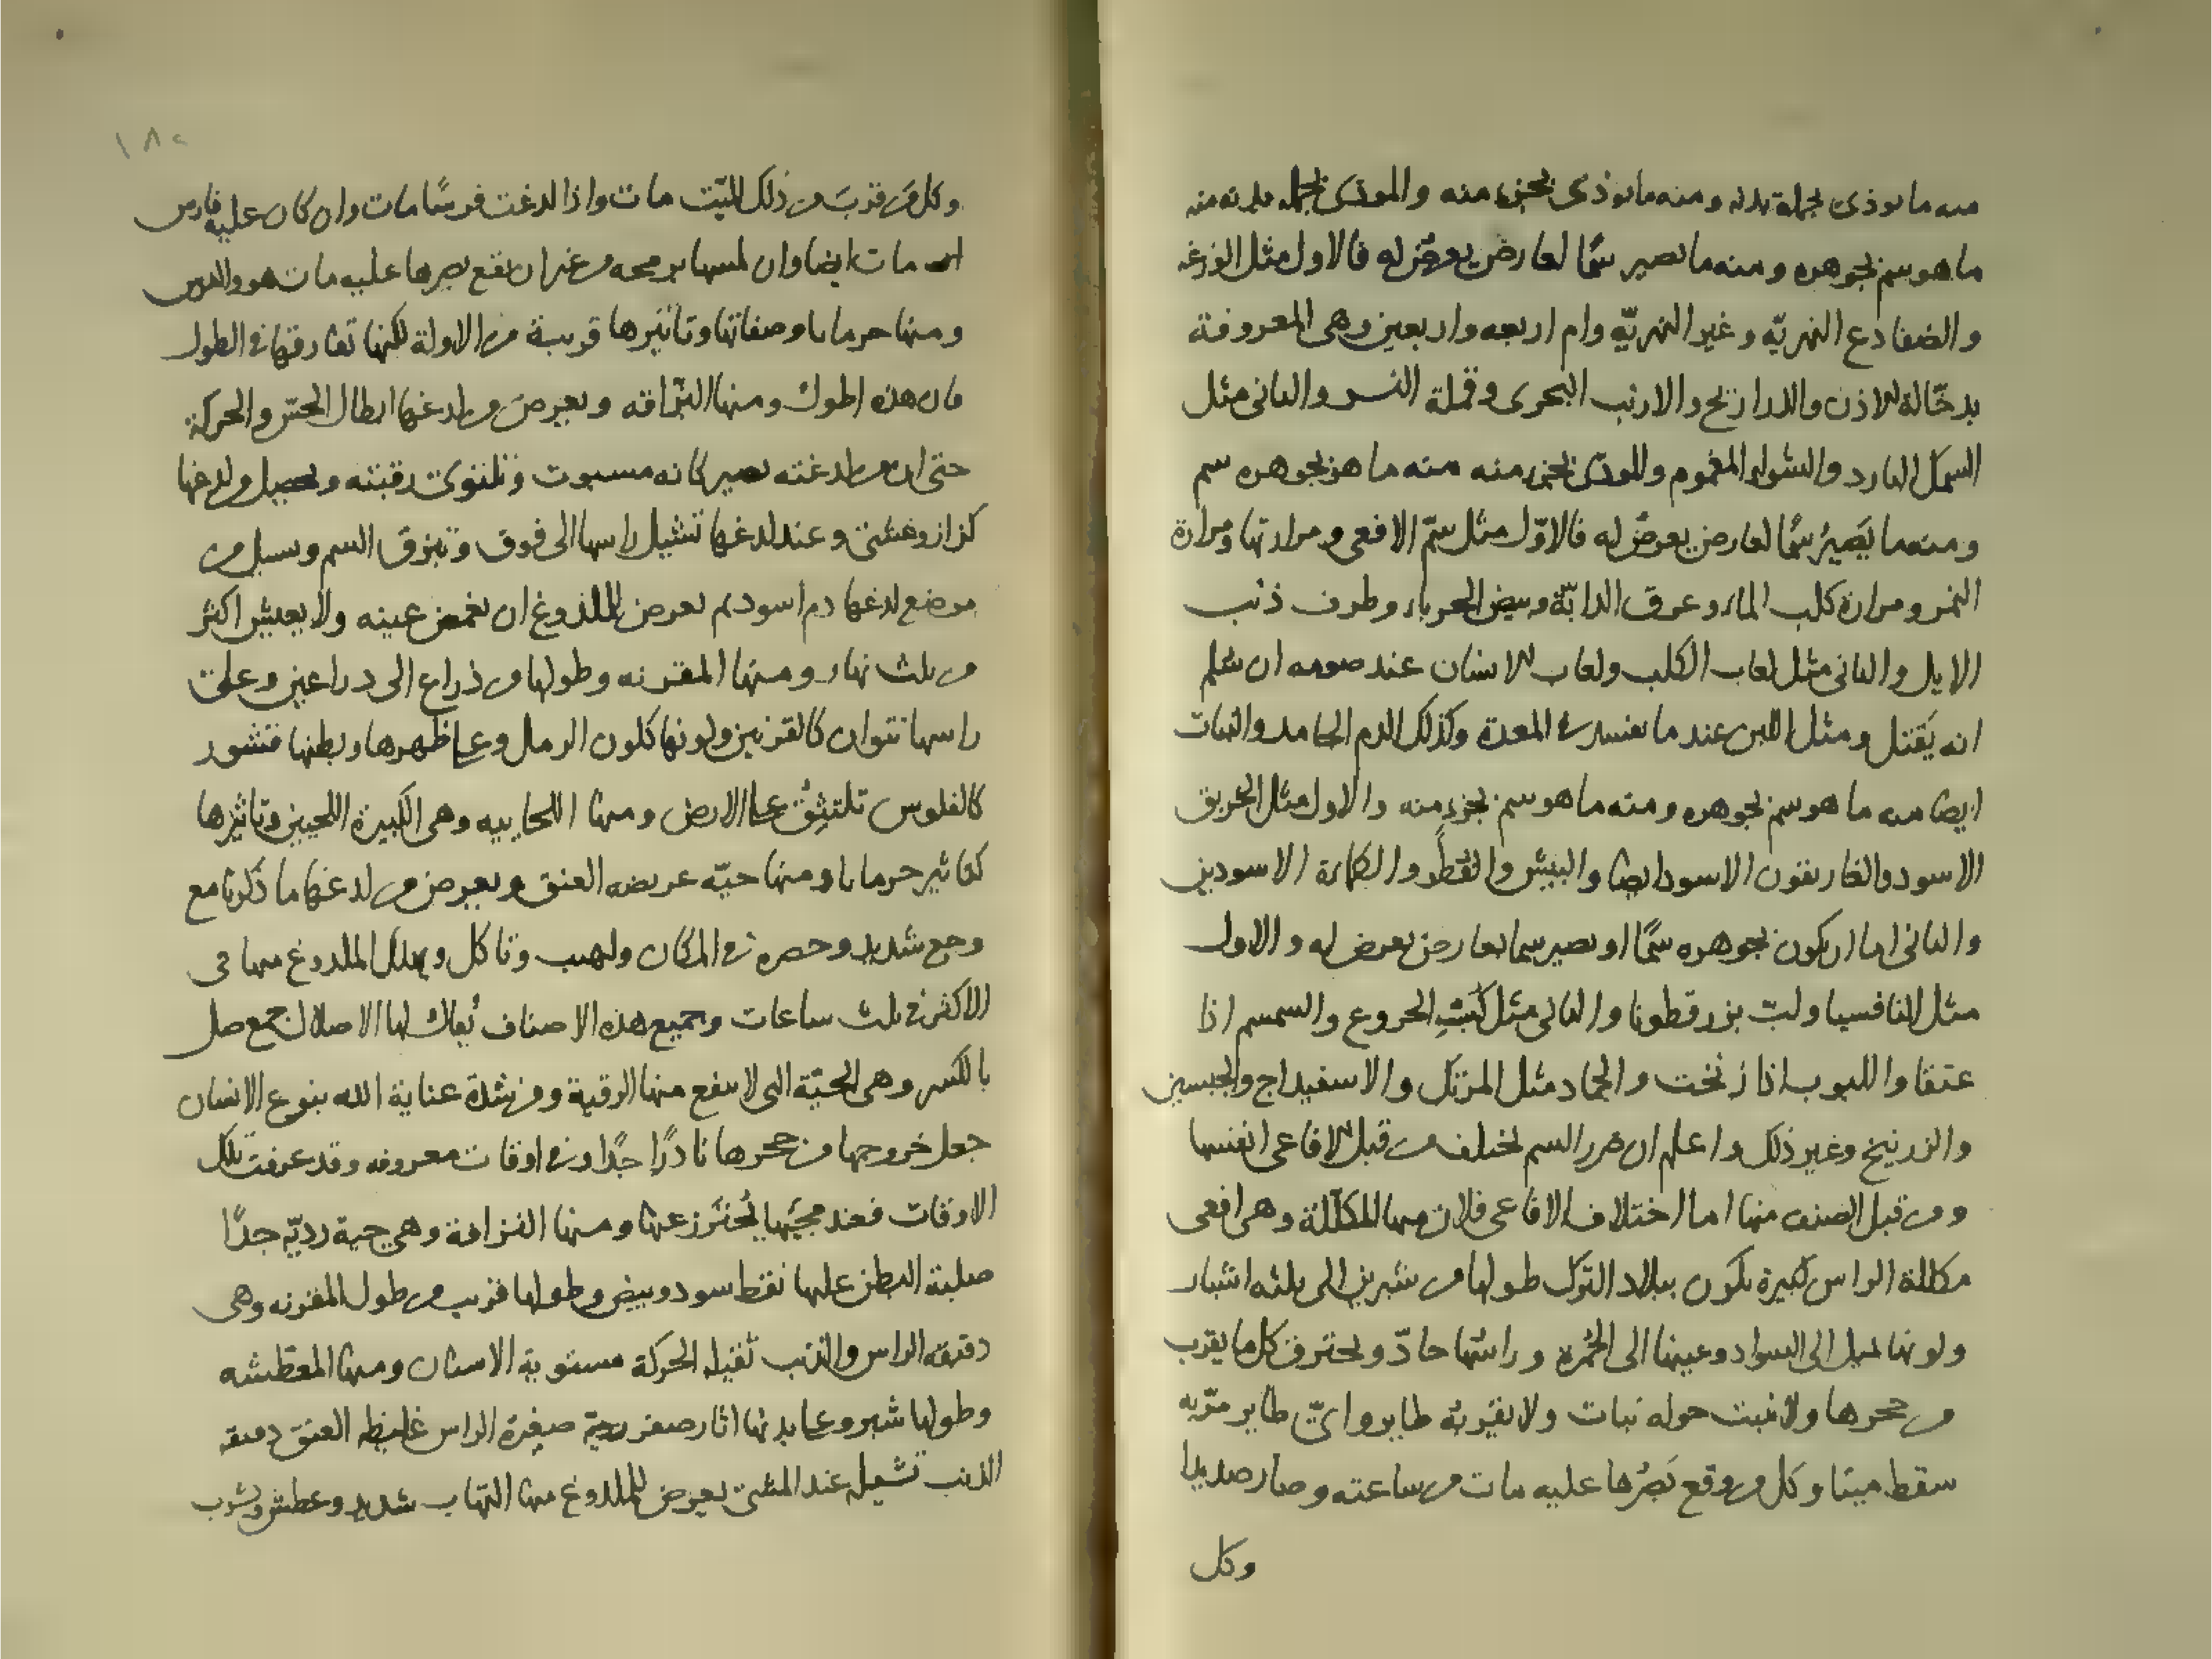 منه ما يوذى بجملة بدنه ومنه ما يوذى بجزء منه والموذى بجملة بدنه منه
ما هو سم بجوهره ومنه ما يصير سمًّا لعارض يعرض له فالاول مثل الوزغه
والضفادع النهريّه وغير النهريّه وام اربعه واربعين وهى المعروفة
بدخّالة الاذن والذراريح والارنب البحرى وقملة النسر والثانى مثل
السمك البارد والشواء المغموم والموذى بجزء منه منه ما هو بجوهره سم
ومنه ما يَصيرُ سمًّا لعارض يعرض له فالاوّل مثل سمّ الافعى ومرارتها ومرارة
النمر ومرارة كلب الماء وعرق الدابّة وبيض الحرباء وطرف ذنب
الايل والثانى مثل لعاب الكلب ولعاب الانسان عند صومه ان سلم
انه يَقتل ومثل اللبن عند ما يفسد فى المعدة وكذلك الدم الجامد والنبات
ايضا منه ما هو سم بجوهره ومنه ما هو سم بجزءٍ منه والاول مثل الخربق
الاسود والغاريقون الاسود ايضا والبيش والفطر والكماة الاسودين
والثانى اما ان يكون بجوهره سمًّا او يصير سما بعارض يعرض له والاول
مثل الثافسيا ولبّ بزر قطونا والثانى مثل لبّ الخروع والسمسم اذا
عتقا واللبوب اذا زنخت والجماد مثل المرتك والاسفيداج والجبسين
والزرنيخ وغير ذلك واعلم ان ضرر السم يختلف من قبل الافاعى انفسها
ومن قبل الصنف منها اما اختلاف الافاعى فلان منها المكلّلة وهى افعى
مكللة الراس كبيرة تكون ببلاد الترك طولها من شبرين الى ثلثه اشبار
ولونها يميل الى السواد وعينها الى الحُمره وراسها حادّ ويحترق كل ما يقرب
من جحرها ولا ينبت حوله نبات ولا يقربه طاير واىّ طاير مرّ به
سقط ميتا وكل من وقع بَصَرُها عليه مات من ساعته وصار صديدا
وكل
١٨٢
وكل من قربَ من ذلك الميّت مات واذا لدغت فرسًا مات وان كان عليه فارس
مات ايضا وان لمسها برمحه من غير ان يقع بصرها عليه مات هو والفرس
ومنها حرمانا وصفاتها وتاثيرها قريبة من الاولة لكنها تفارقها فى الطول
فان هذه اطول ومنها البزّاقه ويعرض من لدغها ابطال الحسّ والحركة
حتى ان من لدغته يصير كانه مسبوت وتلتوى رقبته ويحصل من لدغها
كزاز وغشى وعند لدغها تشيل راسها الى فوق وتبزق السم ويسيل من
موضع لدغها دم اسود ثم يعرض للملذوغ ان يغمض عينه ولا يعيش اكثر
من ثلث نهار ومنها المقرنه وطولها من ذراع الى ذراعين وعلى
راسها نتوان كالقرنين ولونها كلون الرمال وعلى ظهرها وبطنها قشور
كالفلوس تلتثق على الارض ومنها اللحاييه وهى الكبيرة اللحيين وتاثيرها
كتاثير حرمانا ومنها حيّه عريضه العنق ويعرض من لدغها ما ذكرنا مع
وجع شديد وحصره فى المكان ولهيب وتاكل ويهلك الملدوغ منها فى
الاكثر فى ثلث ساعات وجميع هذه الاصناف يُقال لها الاصلال جمع صل
بالكسر وهى الحيّة التى لا ينفع منها الرقية ومن شدة عناية الله بنوع الانسان
جعل خروجها من جحرها نادرًا جدًا وفى اوقات معروفه وقد عرفت تلك
الاوقات فعند مجيّها يُحترز عنها ومنها القزازة وهى حية رديّه جدًا
صلبة البطن عليها نقط سود وبيض وطولها قريب من طول المقرنه وهى
دقيقه الراس والذنب ثقيله الحركة مستويه الاسنان ومنها المعطّشه
وطولها شبر وعلى بدنها اثار صفر رديّة صغيرة الراس غليظه العنق دقيقه
الذنب تشيله عند المشى يعرض للملدوغ منها التهاب شديد وعطش وشرب